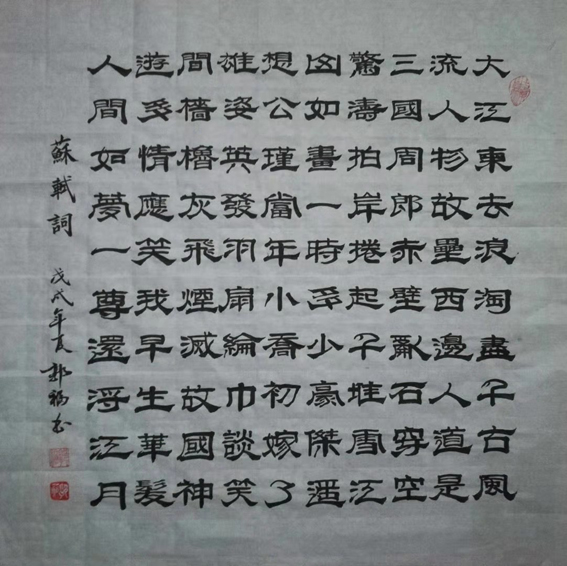 大江東去浪淘盡千古風
流人物故壘西邊人道是
三國周郎赤壁亂石穿空
驚濤拍岸捲起千堆雪江
山如畫一時多少豪傑遥
想公瑾當年小喬初嫁了
雄姿英發羽扇綸巾談笑
間檣櫓灰飛煙滅故國神
遊多情應笑我早生華髮
人間如夢一尊還酹江月
蘇軾詞 戊戌年夏 郭